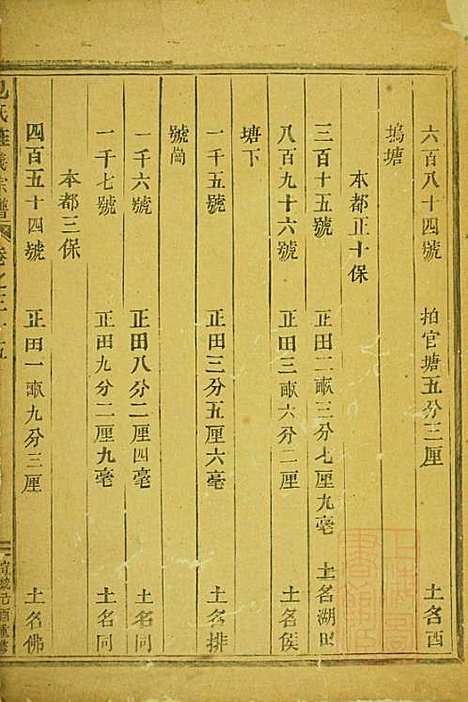 六百八十四號 拍官塘五分三厘 土名西
塢塘
本都正十保
三百十五號 正田二畝三分七厘九毫 土名湖田
八百九十六號 正田三畝六分二厘 土名俟
塘下
一千五號 正田三分五厘六毫 土名排
號崗
一千六號 正田八分二厘四毫 土名同
一千七號 正田九分二厘九毫 土名同
本都三保
四百五十四號 正田一畝九分三厘 土名佛
氏 宗譜 卷之三十五
宣統己酉重修